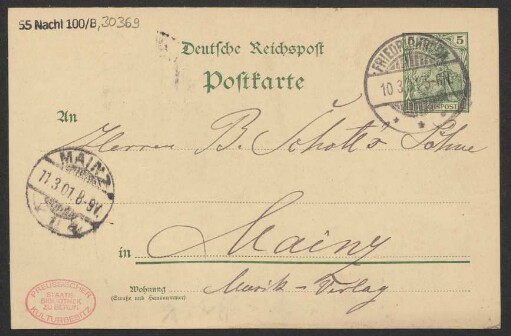 55 Nachl 100/B,30369
Deutsche Reichspost
Postkarte
5
10.3.01.
An
Herren B. Schott's Söhne
MAINZ
11.3.01.8-9V.
in Mainz
Wohnung
(Straße und Hausnummer)
Musik-Verlag
PREUSSISCHER
STAATS-
BIBLIOTHEK
ZU BERLIN
KULTURBESITZ